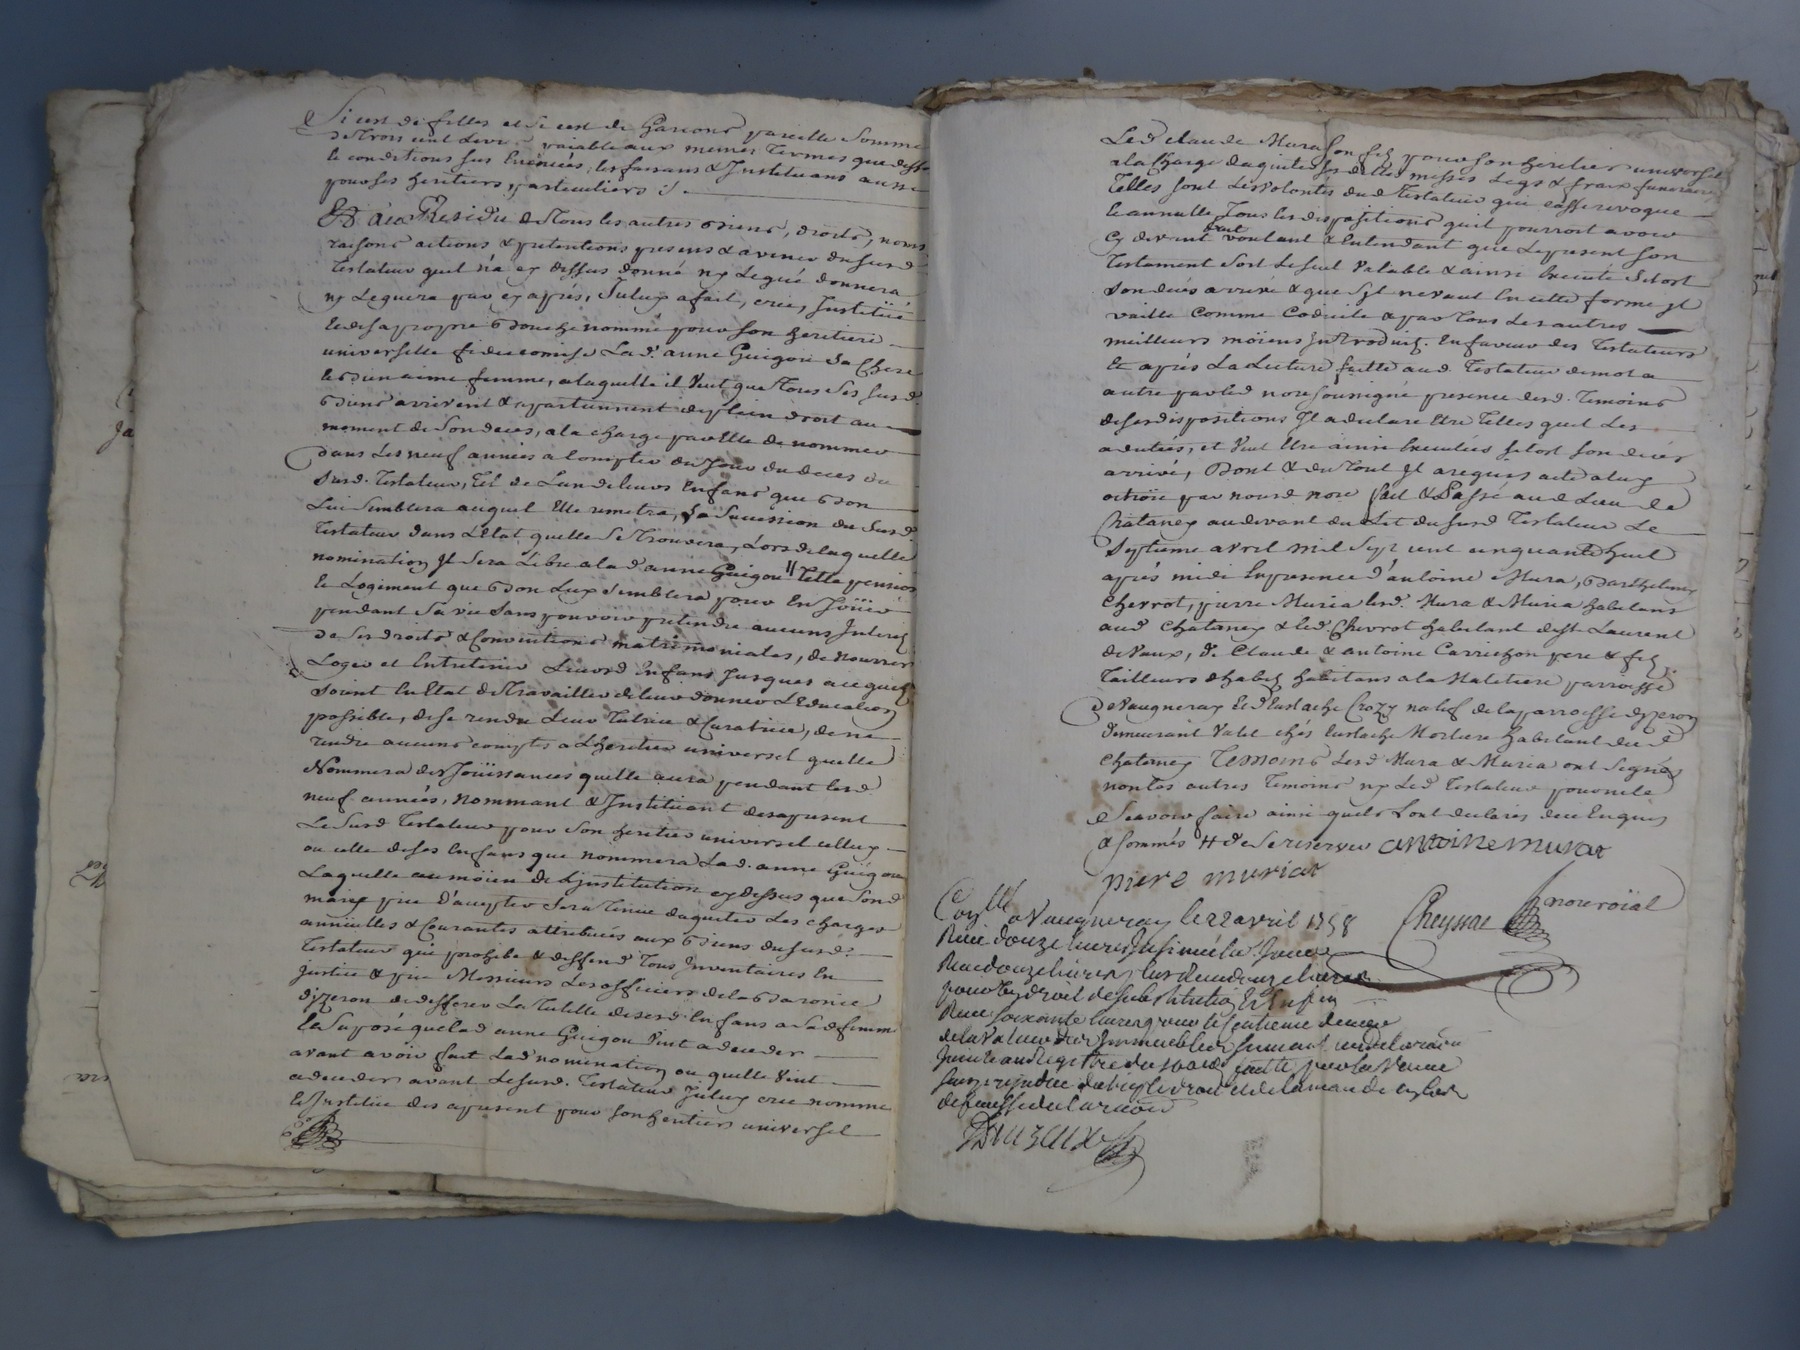 Si c'est de filles et si c'est de Garcons pareille Somme
de trois cent Livres paiable aux memes Termes que dessus
le conditions sus Enoncées, les faisans & Instituans aussi
pour ses heritiers particuliers
Et au Residu de tous les autres biens, droits, noms
raisons actions & pretentions presens & avenir dususd
Testateur quil n'a cy dessus donné ny Legué donnera
ny Leguera par cy après, Iceluy a fait, créé, Institüé
et desa propre bouche nommé pour son heritiere
universelle fideicomise La d. anne Guigou Sa Chere
et bien aimé femme, alaquelle il Veut que tous ses susd.
biens arrivent & apartiennent deplein droit au
moment de Son deces, ala charge par Elle de nommer
dans Les neuf années a Compter du Jour du deces du
Susd. Testateur, Tel de L'un de leurs Enfans que bon
Lui Semblera auquel Elle remetra, La Sucession du Susd.
Testateur dans L'Etat quelle Se trouvera, Lors delaquelle
nomination Il Sera Libre ala d anne Guigou // Telle pension
et Logement que bon Luy Semblera pour En Joüir
pendant Sa vie Sans pouvoir pretendre aucuns Interets
de Ses droits & Conventions matrimoniales, de nourrir
Loger et Entretenir Leursd Enfans Jusques ace quils
soient En Etat de travailler de leur donner L'Education
possible, dese rendre Leur Tutrice & Curatrice, de ne
rendre aucuns comptes a L'heritier universel quelle
Nommera des Joüissances quelle aura pendant lesd
neuf années, Nommant & Instituant desapresent
Le Susd Testateur pour Son heritier universel celluy
ou celle deses Enfans que nommera Lad. anne Guigou
Laquelle au möien de L'institution cy dessus que Sond
mary prie d'accepter Sera Tenüe daquiter Les charges
annüelles & Courantes attribuées aux biens dususd.
Testateur qui prohibe & deffend Tous Inventaires En
justice & prie Messieurs Les officiers de la Baronie
d'yzeron de defferer La Tutelle desesd. Enfans a Sad femme
Et Suposé quelad anne Guigou Vint a deceder
avant avoir fait Lad nomination ou quelle Vint
a deceder avant Lesusd. Testateur Iceluy crée nomme
et Institue des apresent pour Son heritier universel
Led Claude Mura Son fils pour Son heritier universel
ala Charge daquiter Ses dettes messes Legs & fraix funeraires
Telles sont Les volontés dud Testateur qui casse revoque
et annulle Tous les dispositions quil pourroit avoir
Cy devant fait voulant & Entendant que Le present Son
Testament Soit Le Seul Valable & ainsi Executé Sitot
Son deces arrivé & que Sil ne vaut En cette forme Il
vaille Comme Codicile & par Tous Les autres
meilleurs möiens Introduits En faveur des Testateurs
Et après La Lecture faitte aud Testateur demot a
autre par led nore Soussigné presence desd. Temoins
de Ses dispositions Il a declaré Etre Telles quil Les
a dictées, et Veut Etre ainsi Executées Sitot Son deces
arrivé, Dont & du Tout Il a requis acte a luy
octroïé par nousd nore fait & Passé aud Lieu de
Chataney audevant du Lit dususd Testateur Le
Septieme avril mil Sept cent cinquante huit
après midi En presence d'antoine Mura, Barthelemy
Chevrot, pierre Muria Lesd. Mura & Muria habitans
aud Chataney & led. Chevrot habitant de St Laurent
de Vaux, de Claude & antoine Carrichon pere & fils
Tailleurs d'habits habitans a la Maletiere parroisse
de Vaugneray Et d'Eustache Crozy natif de la parroisse dyzeron
demeurant Valet chés Eustache Mortier habitant dud
Chataney Temoins Lesd Mura & Muria ont Signés
non Les autres Temoins ny Led Testateur pour ne le
Scavoir faire ainsi quils L'ont declarés dece Enquis
& Sommés // de Se reserver antoine murat
piere muriat
Cheyssac nore roïal
Con.lle a Vaugneray le 22 avril 1758
Receu douze livres
Receu douze livres
pour le droit de substitution
Receu soixante livres pour le centieme denier
de la Valeur des Immeubles suivant la declaration